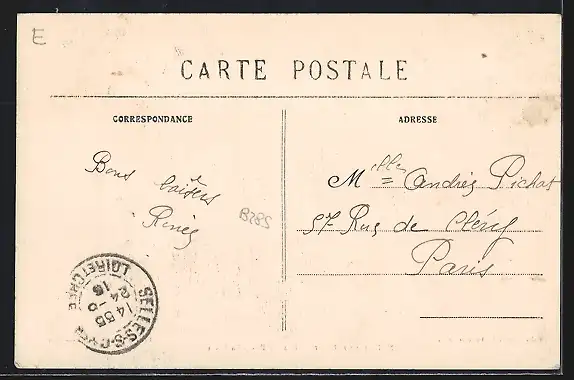 E
CARTE POSTALE
CORRESPONDANCE
ADRESSE
Bons
baisers
Renée
B285
Mlle Andrée Pichat
57 Rue de Cléry
Paris
SELLES-S-CHER
14 55
24
16
LOIR ET CHER